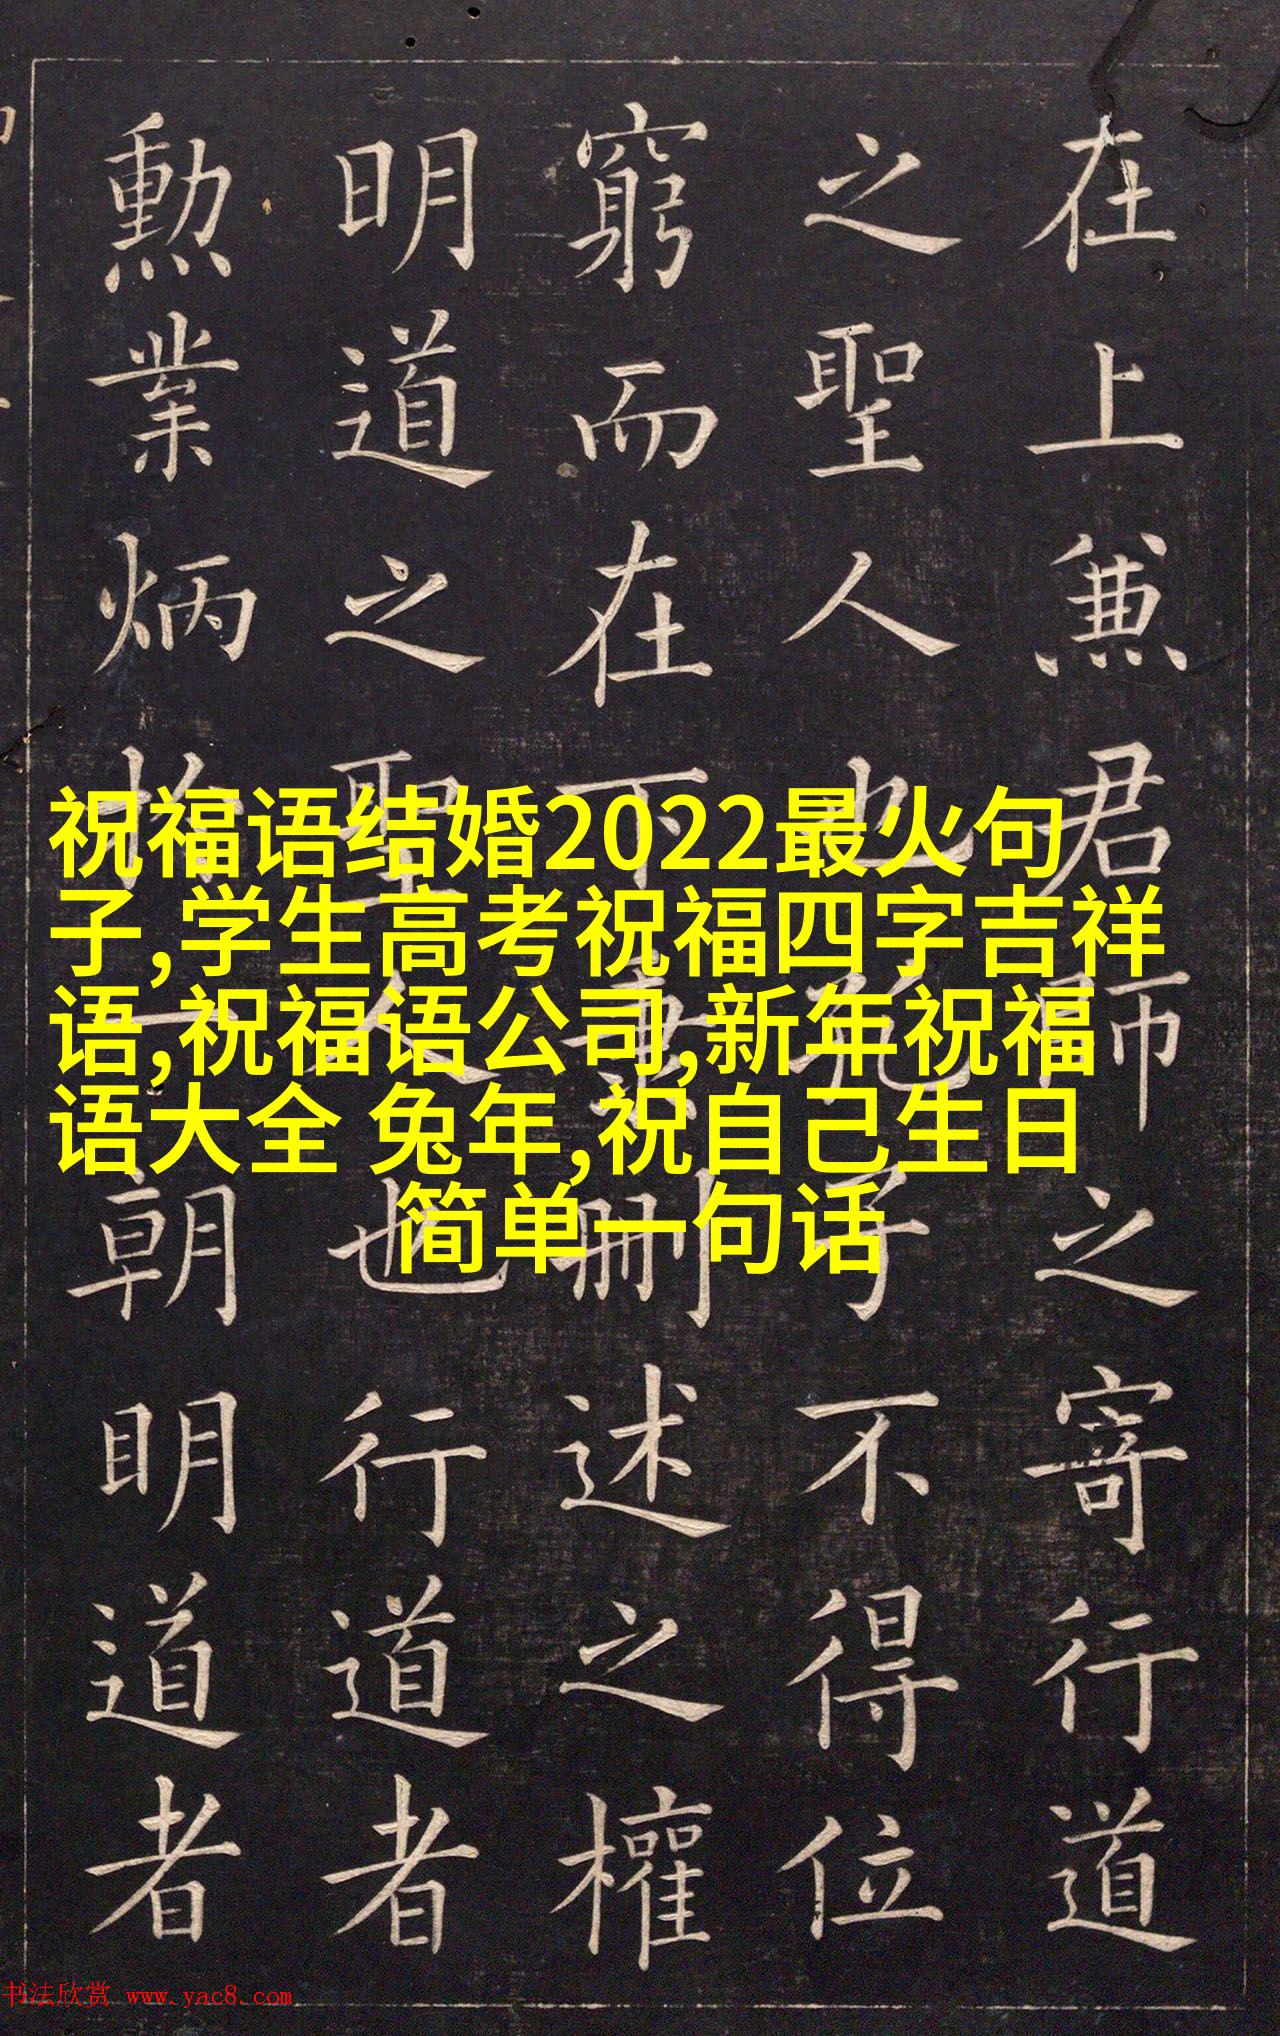 在上兼君師之寄行道
之聖人也孔子不得位
窮而在下秉刪述之權
明道之聖人也行道者
勳業炳於一朝明道者
祝福语结婚2022最火句
子,学生高考祝福四字吉祥
语,祝福语公司,新年祝福
语大全 兔年,祝自己生日
简单一句话
书法欣赏 www.yac8.com